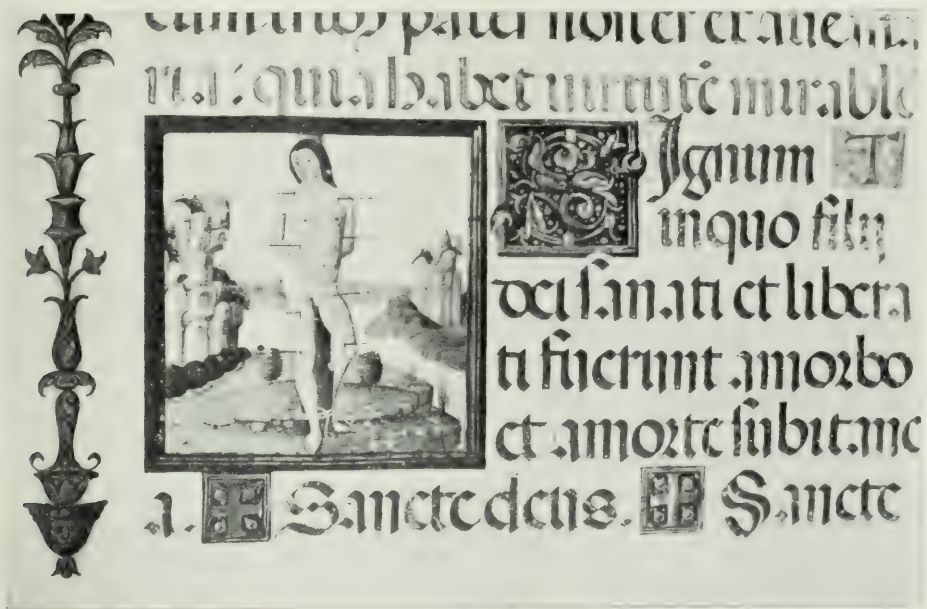 pater noster et aue ma
ria: quia habet uirtutē mirabile
SIgnum T
inquo filij
dei sanati et libera
ti fuerunt amorbo
et amorte subitane
a. ✠ Sancte deus. ✠ Sancte